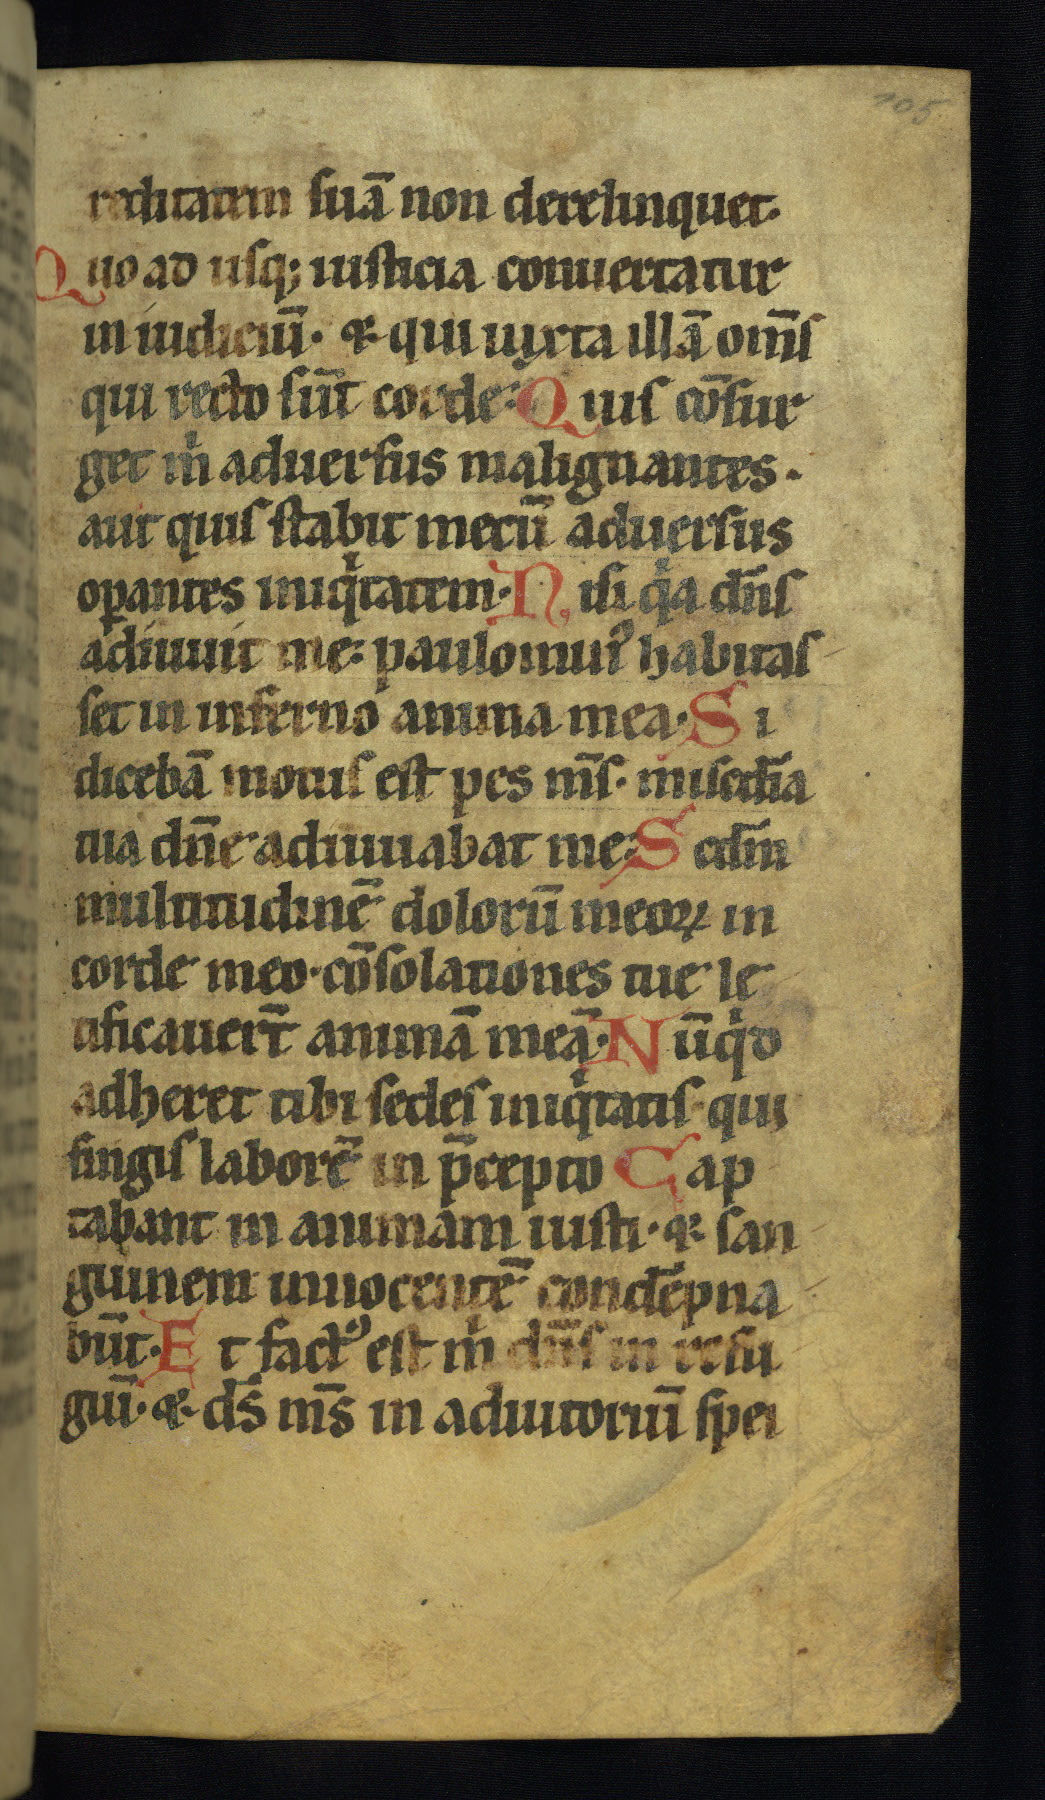 105
reditatem suā non derelinquet.
Quo ad usq; iusticia conuertatur
in iudiciū. & qui iuxta illā om̄s
qui recto sūt corde: Quis cōsur
get m̍ aduersus malignantes.
aut quis stabit mecū aduersus
oꝑantes iniq̍tatem. Nisi q̍a dn̄s
adiuuit me: paulominꝰ habitas
set in inferno anima mea. Si
dicebā motus est pes ms̄. misedīa
tua dn̄e adiuuabat me: Scdm̄
multitudinē dolorū meoꝝ in
corde meo. cōsolationes tue le
tificauert̄ animā meā. Nūq̍d
adheret tibi sedes iniq̍tatis qui
fingis laborē in p̄cepto Cap
tabant in animam iusti. & san
guinem innocentē condēpna
būt. Et factꝰ est m̍ dn̄s in refu
giū. & ds̄ ms̄ in adiutoriū spei